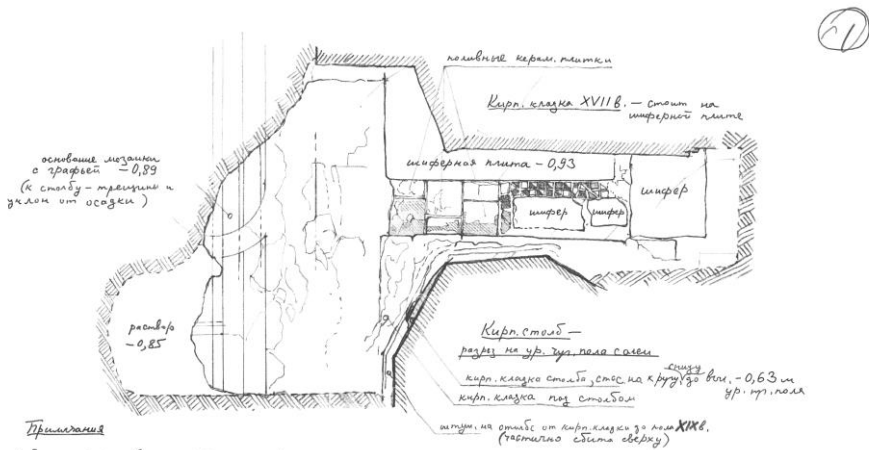 1
поливные керам. плитки
Кирп. кладка XVII в. — стоит на
шиферной плите
основание мозаики
с графьей −0,89
(к столбу – трещины и
уклон от осадки)
шиферная плита −0,93
шифер
шифер
шифер
раствор
−0,85
Кирп. столб —
разрез на ур. чуг. пола солеи
снизу
кирп. кладка столба, стес на круг, до выс. −0,63 м
ур. чуг. пола
кирп. кладка под столбом
штук. на столбе от кирп. кладки до пола XIX в.
(частично сбита сверху)
Примечания